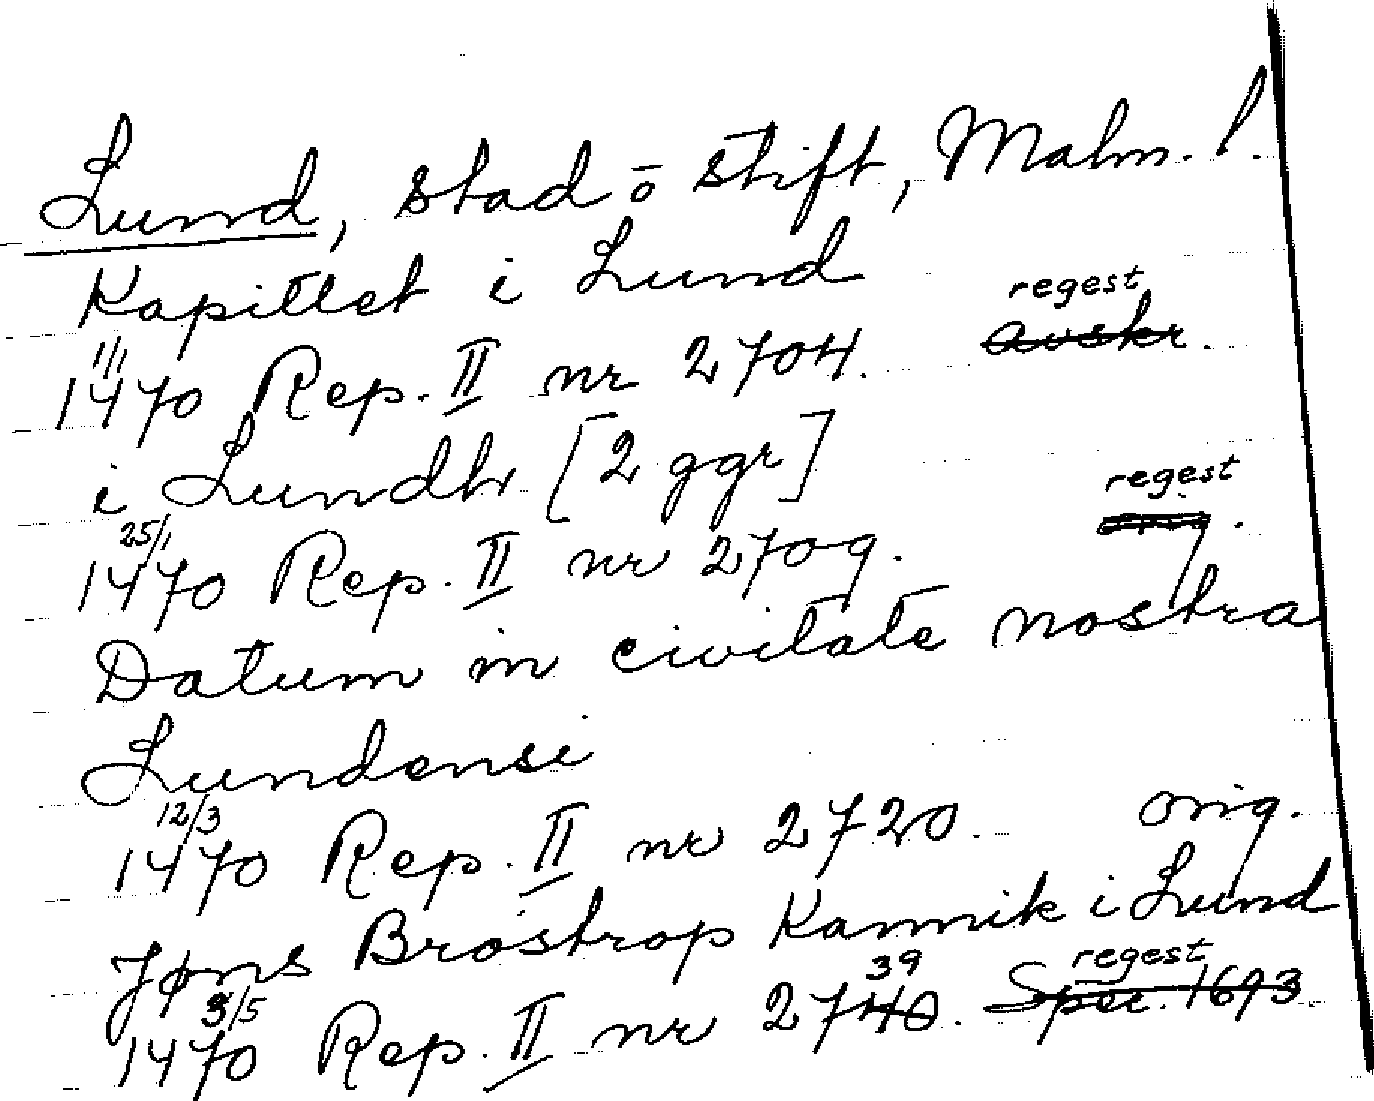 Lund, stad o stift, Malm. l.
Kapitlet i Lund
regest
1/1
1470 Rep. II nr 2704. avskr.
i Lundh [2 ggr]
regest
25/1
1470 Rep. II nr 2709. orig.
Datum in civitate nostra
Lundensi
12/3
1470 Rep. II nr 2720. orig.
Jøns Brostrop Kannik i Lund
39 regest
3/5
1470 Rep. II nr 2740. Sper. 1693